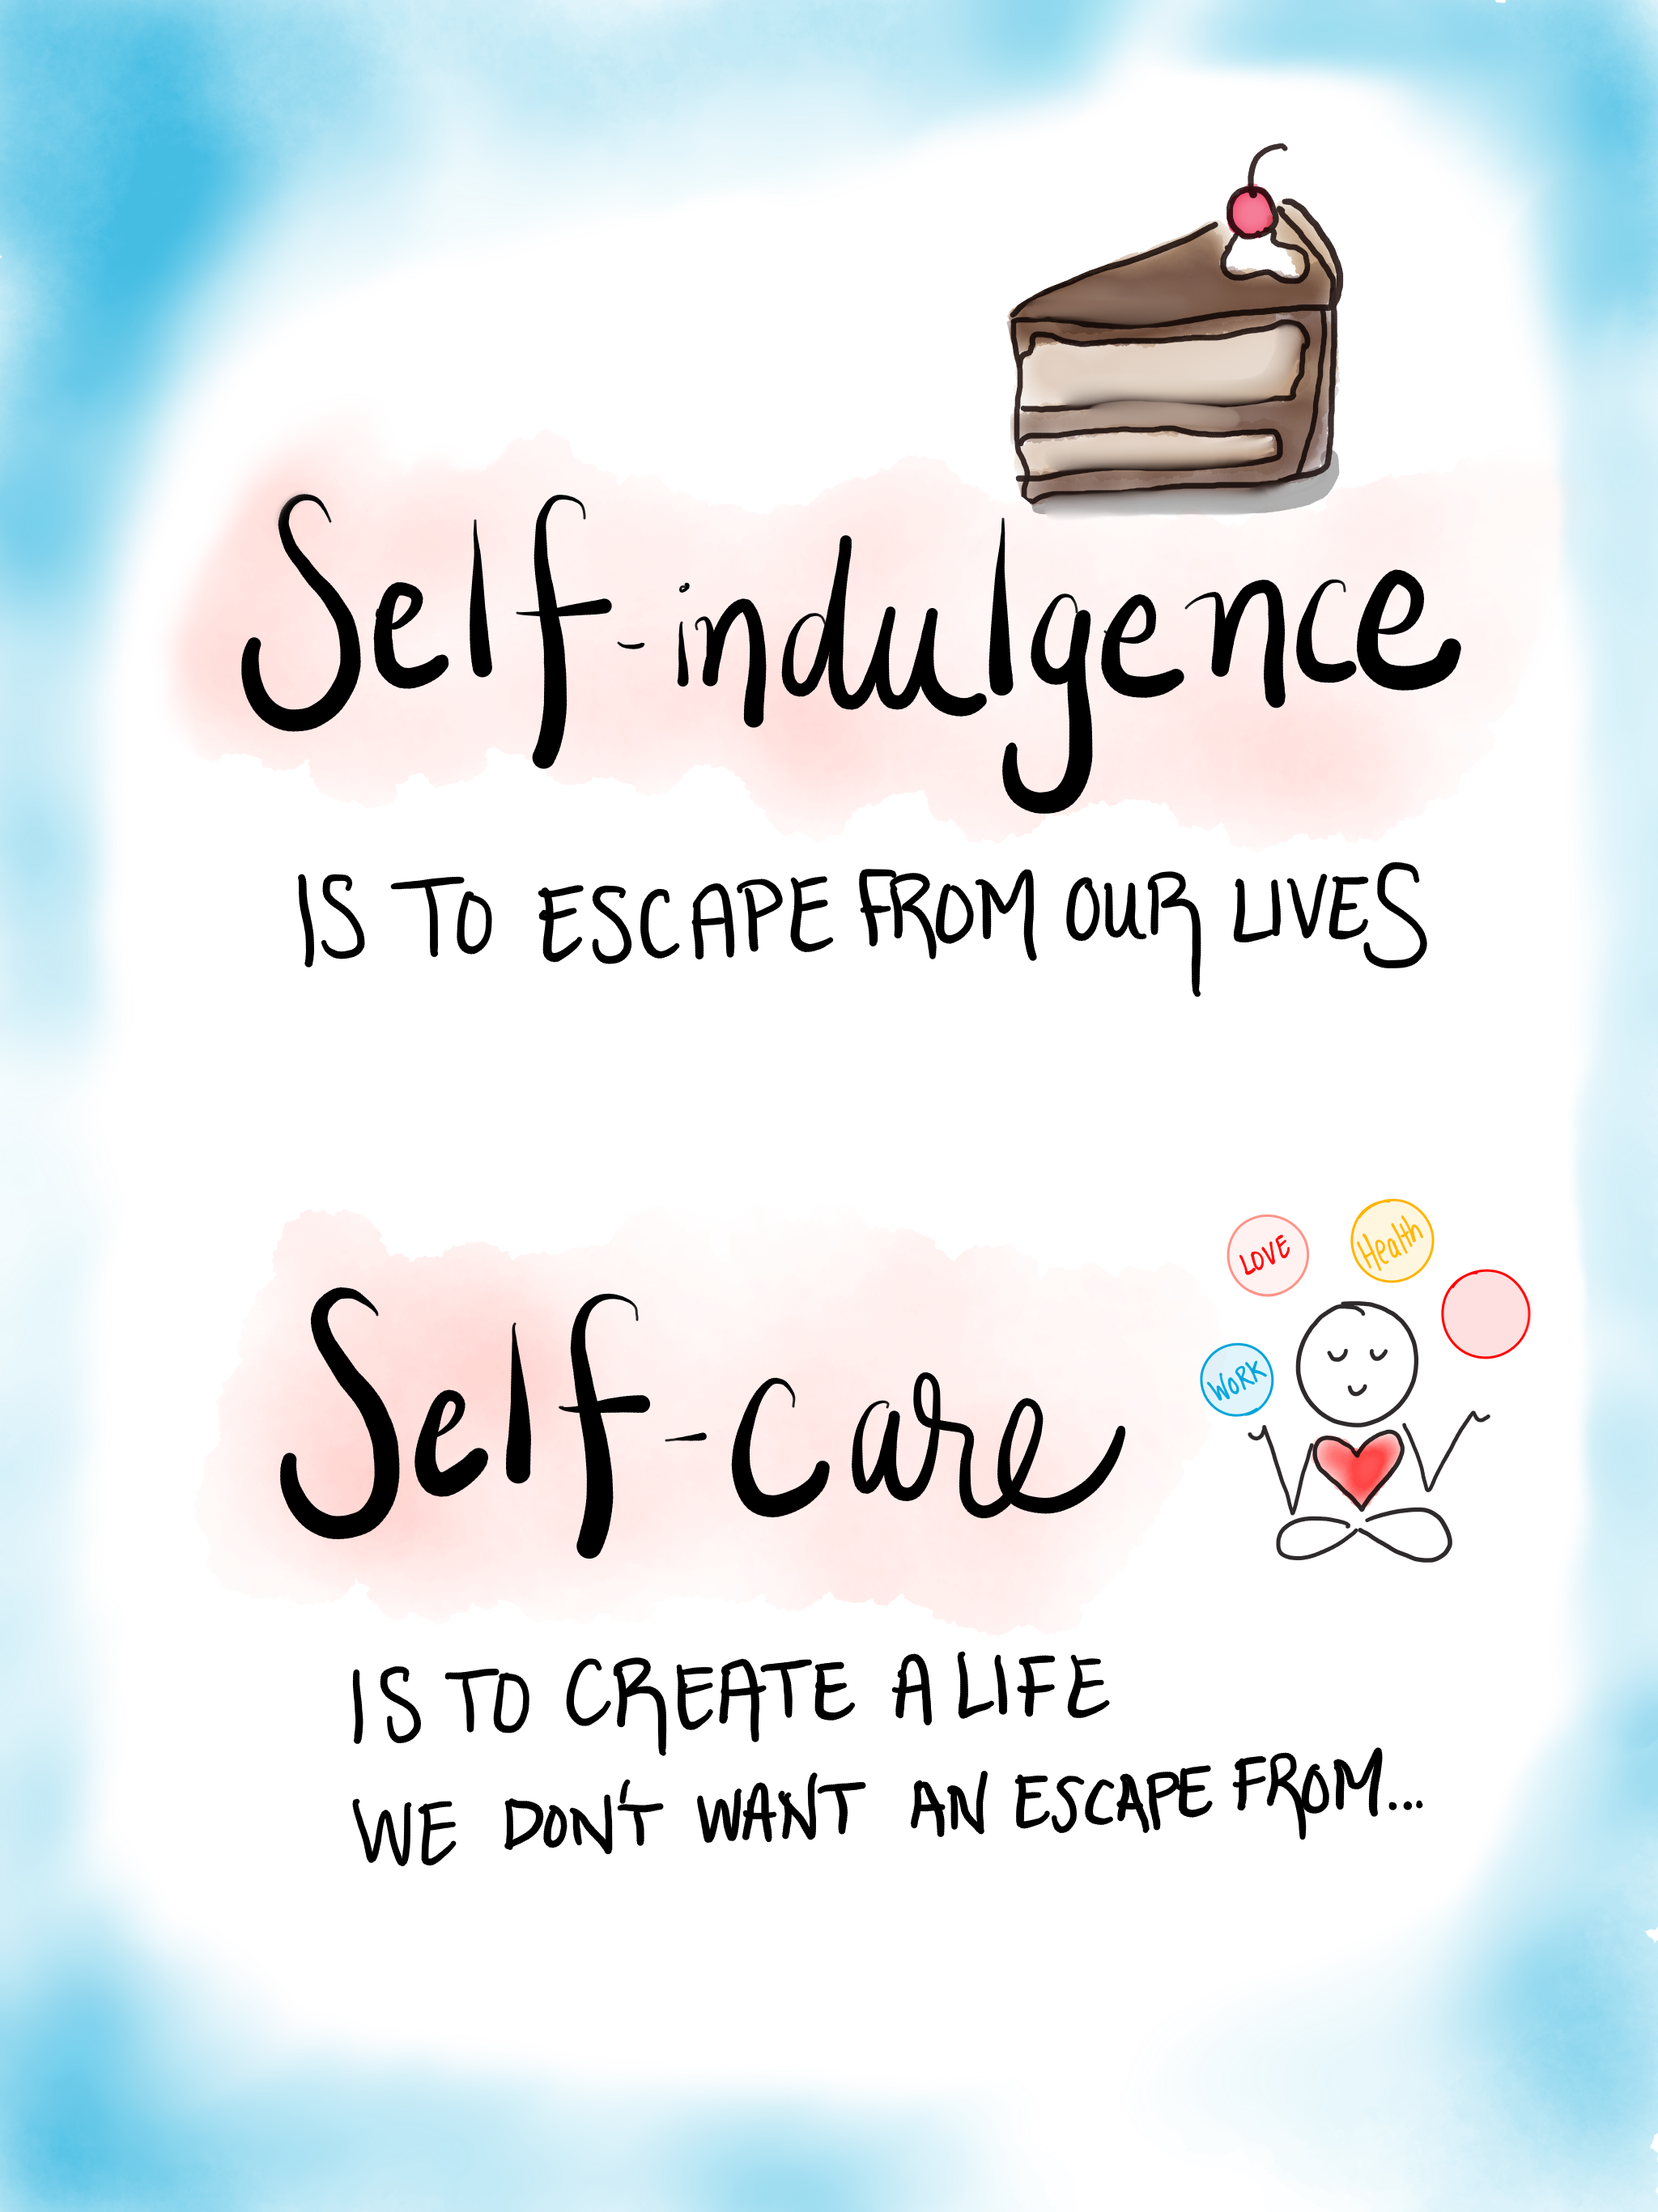 Self-indulgence
IS TO ESCAPE FROM OUR LIVES
LOVE
Health
WORK
Self-care
IS TO CREATE A LIFE
WE DON'T WANT AN ESCAPE FROM...